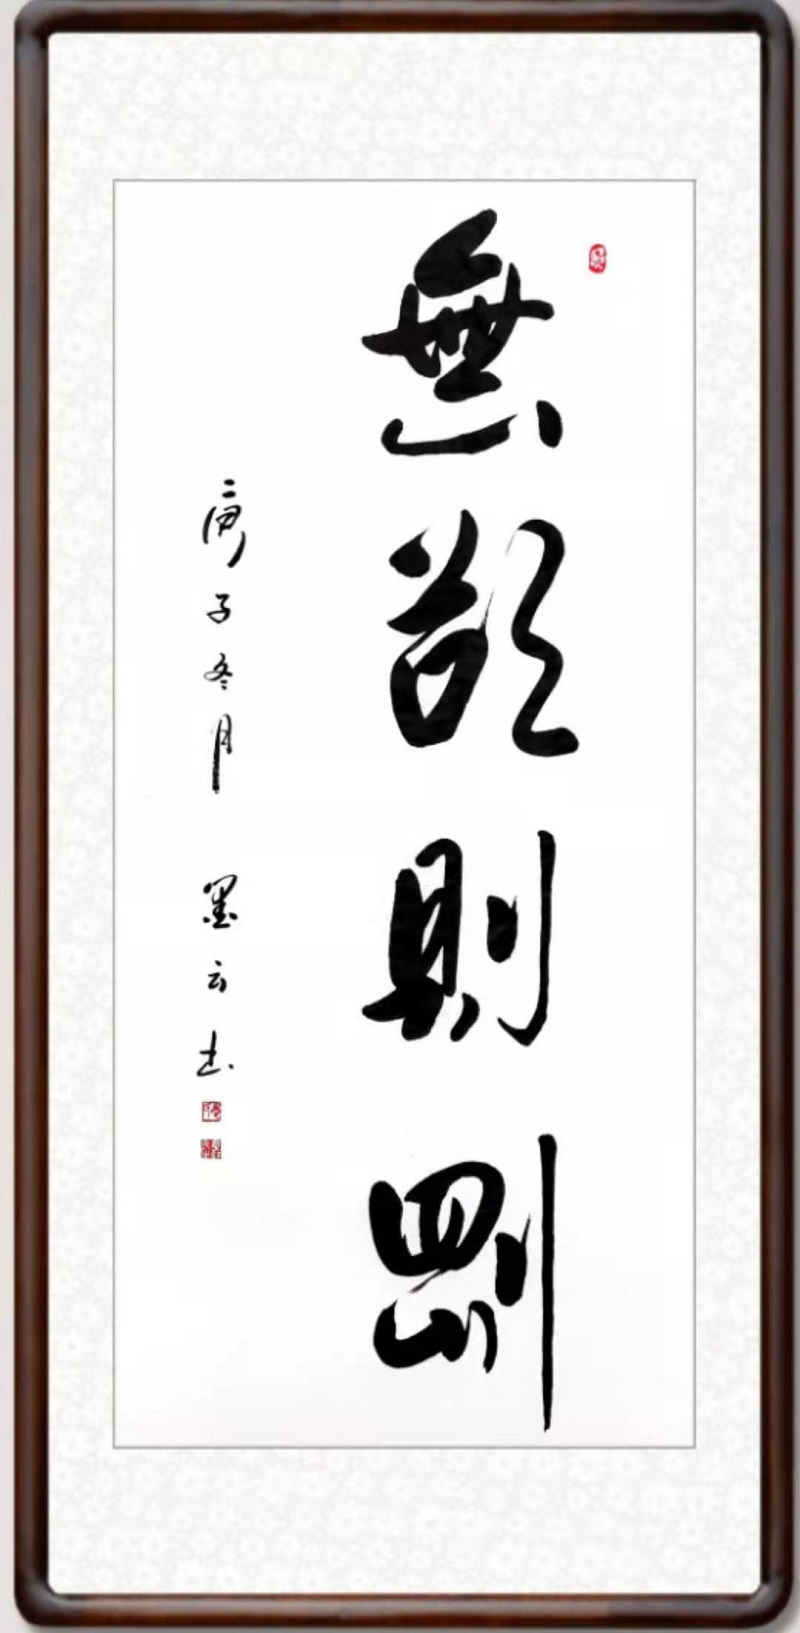 無欲則剛
庚子冬月 墨云书